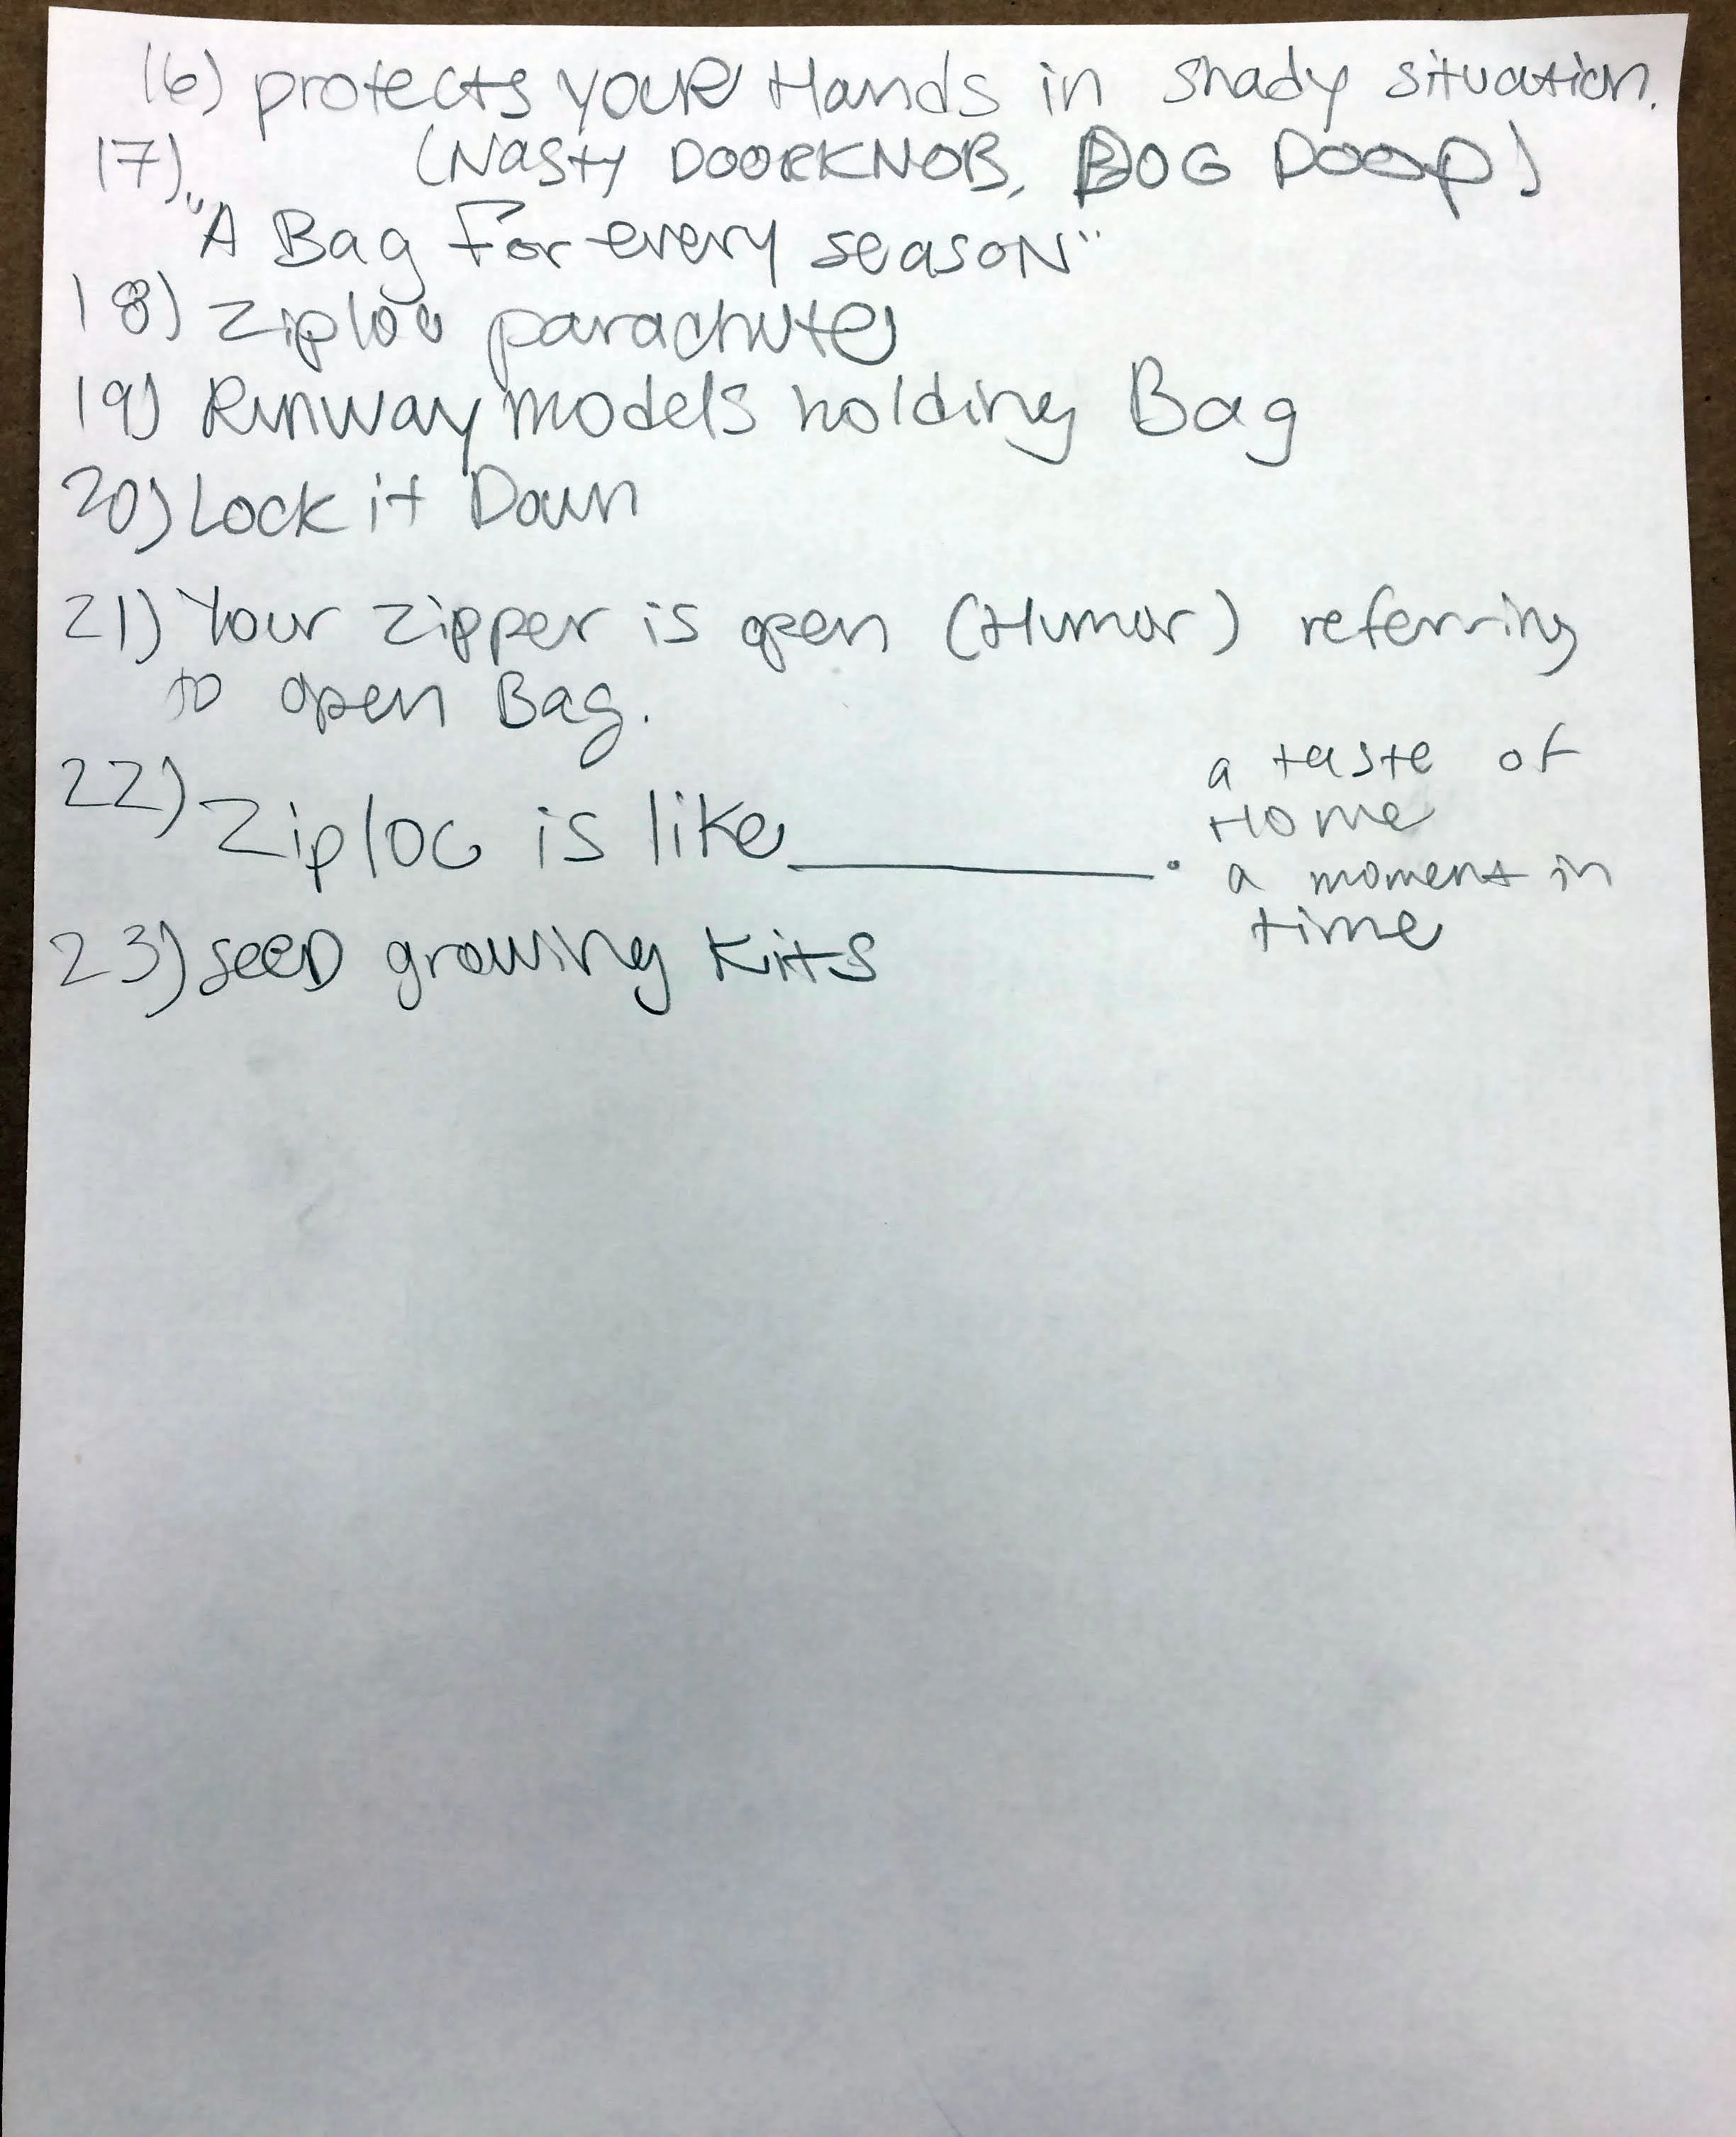 16) protects youR Hands in shady situation.
17) (Nasty DOORKNOB, DOG Poop)
"A Bag For every seasoN"
18) Ziploc parachute
19) Runway models holding Bag
20) Lock it Down
21) Your Zipper is open (Humor) referring
to open Bag.
22) Ziploc is like ________.
a taste of
Home
a moment in
time
23) seeD growing Kits